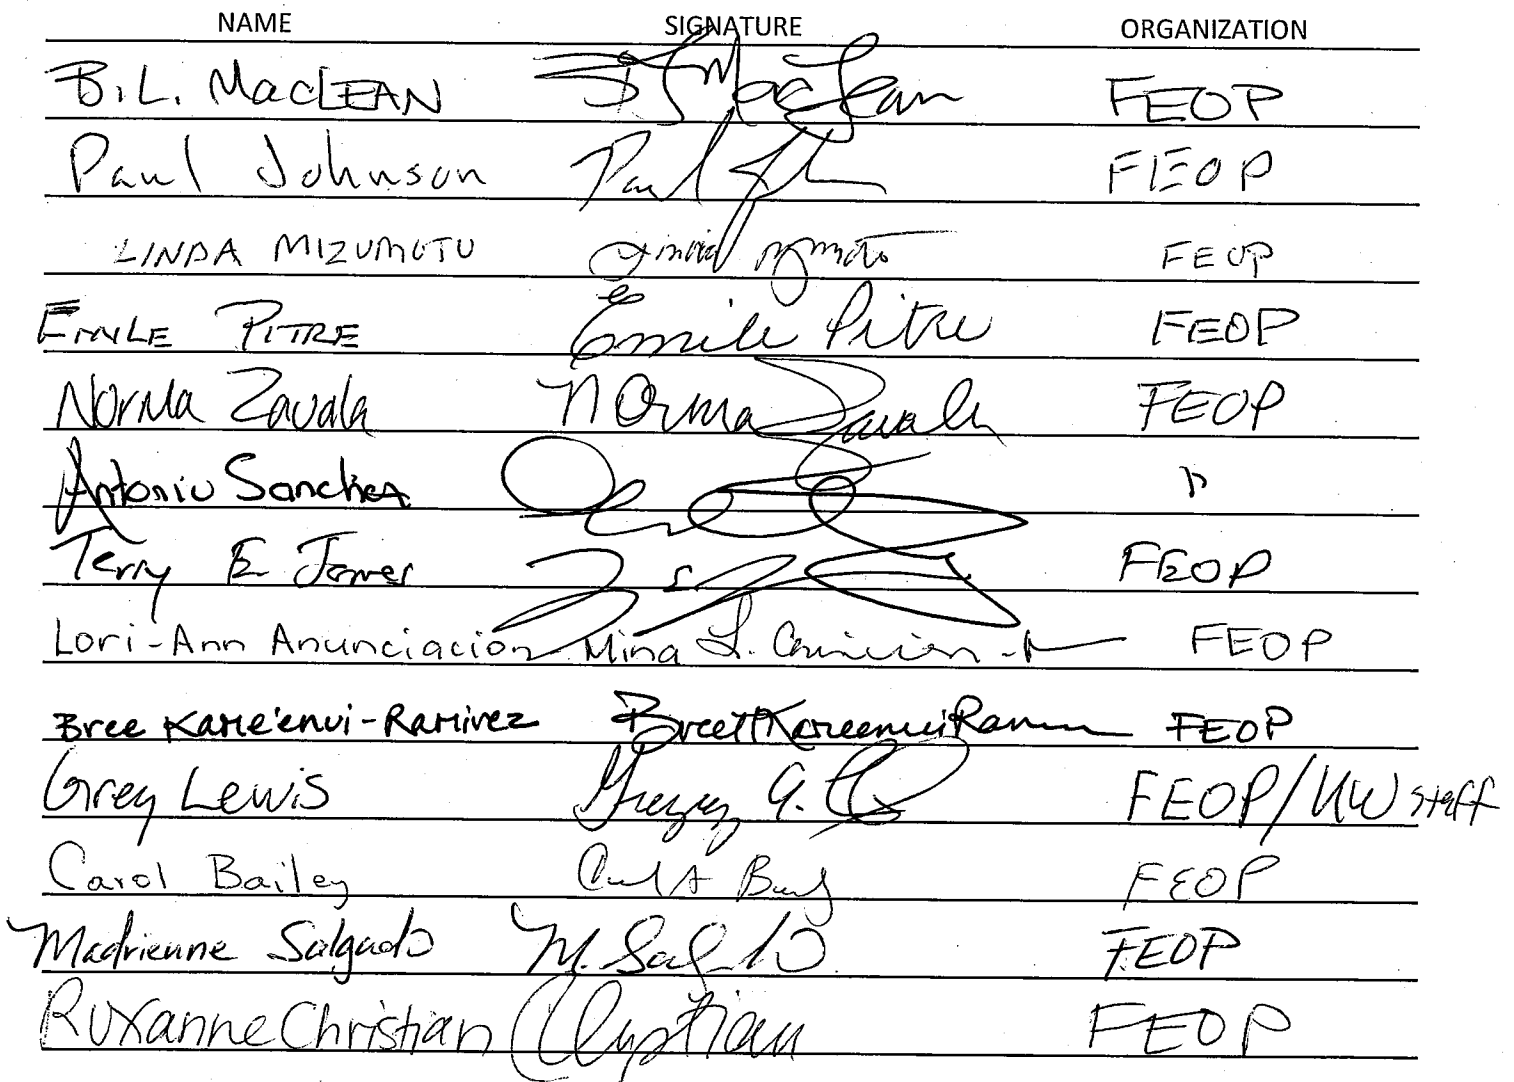 NAME SIGNATURE ORGANIZATION
B.L. MacLEAN B L MacLean FEOP
Paul Johnson Paul FEOP
LINDA MIZUMOTO Linda Mizumoto FEOP
EMILE PITRE Emile Pitre FEOP
Norma Zavala Norma Zavala FEOP
Antonio Sanchez "
Terry E Jones FEOP
Lori-Ann Anunciacion FEOP
Bree Kame'enui-Ramirez FEOP
Greg Lewis G. FEOP/UW staff
Carol Bailey FEOP
Madrienne Salgado M. Salgado FEOP
Roxanne Christian Christian FEOP